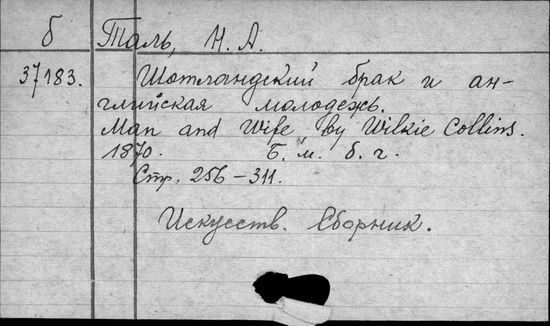 б Таль, Н. А.
37183. Шотландский брак и ан-
глийская молодежь.
Man and Wife by Wilkie Collins.
1870. Б. м. б. г.
Стр. 256-311.
Искусств. Сборник.